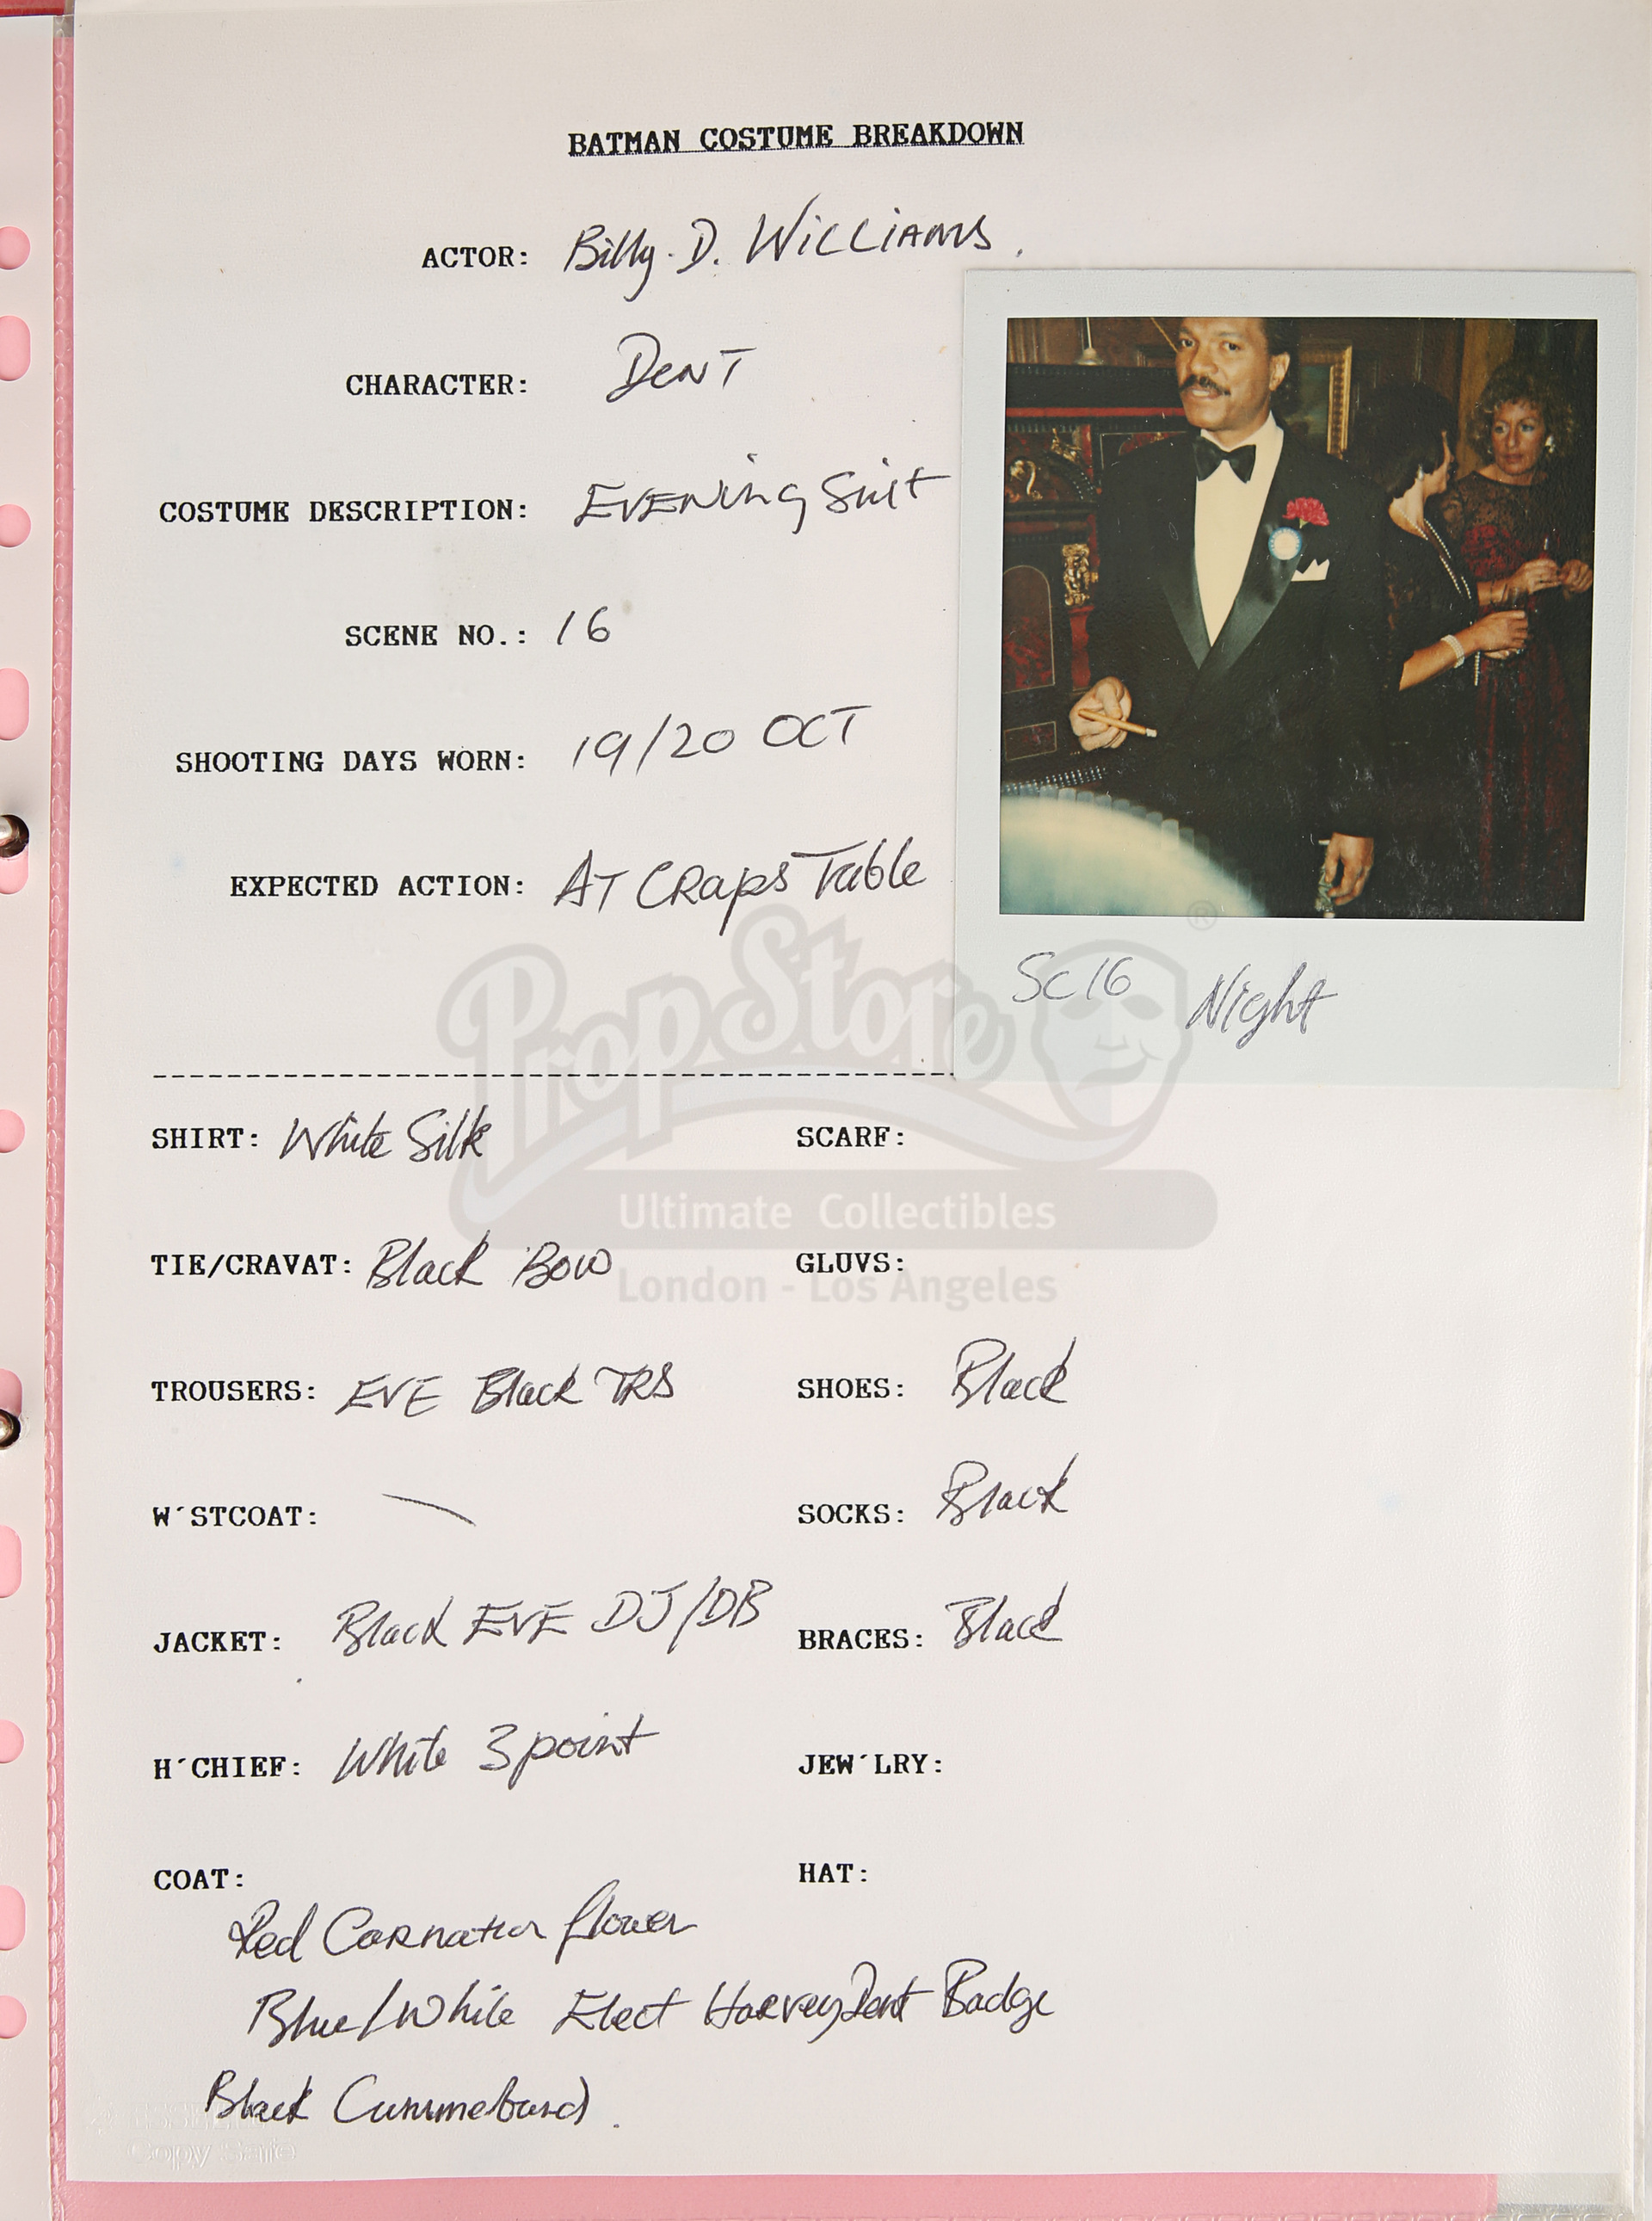 BATMAN COSTUME BREAKDOWN
ACTOR: Billy. D. WILLIAMS.
CHARACTER: DENT
COSTUME DESCRIPTION: EVENING Suit
SCENE NO.: 16
SHOOTING DAYS WORN: 19/20 OCT
EXPECTED ACTION: AT CRAPS Table
SC16 Night
PropStore ®
SHIRT: White Silk SCARF:
Ultimate Collectibles
TIE/CRAVAT: Black Bow GLUVS:
London - Los Angeles
TROUSERS: EVE Black TRS SHOES: Black
W´STCOAT: SOCKS: Black
JACKET: Black EVE DJ/DB BRACES: Black
H´CHIEF: White 3 point JEW´LRY:
COAT: HAT:
Red Carnation flower
Blue/White Elect Harvey Dent Badge
Black Cummebund.
Copy Safe